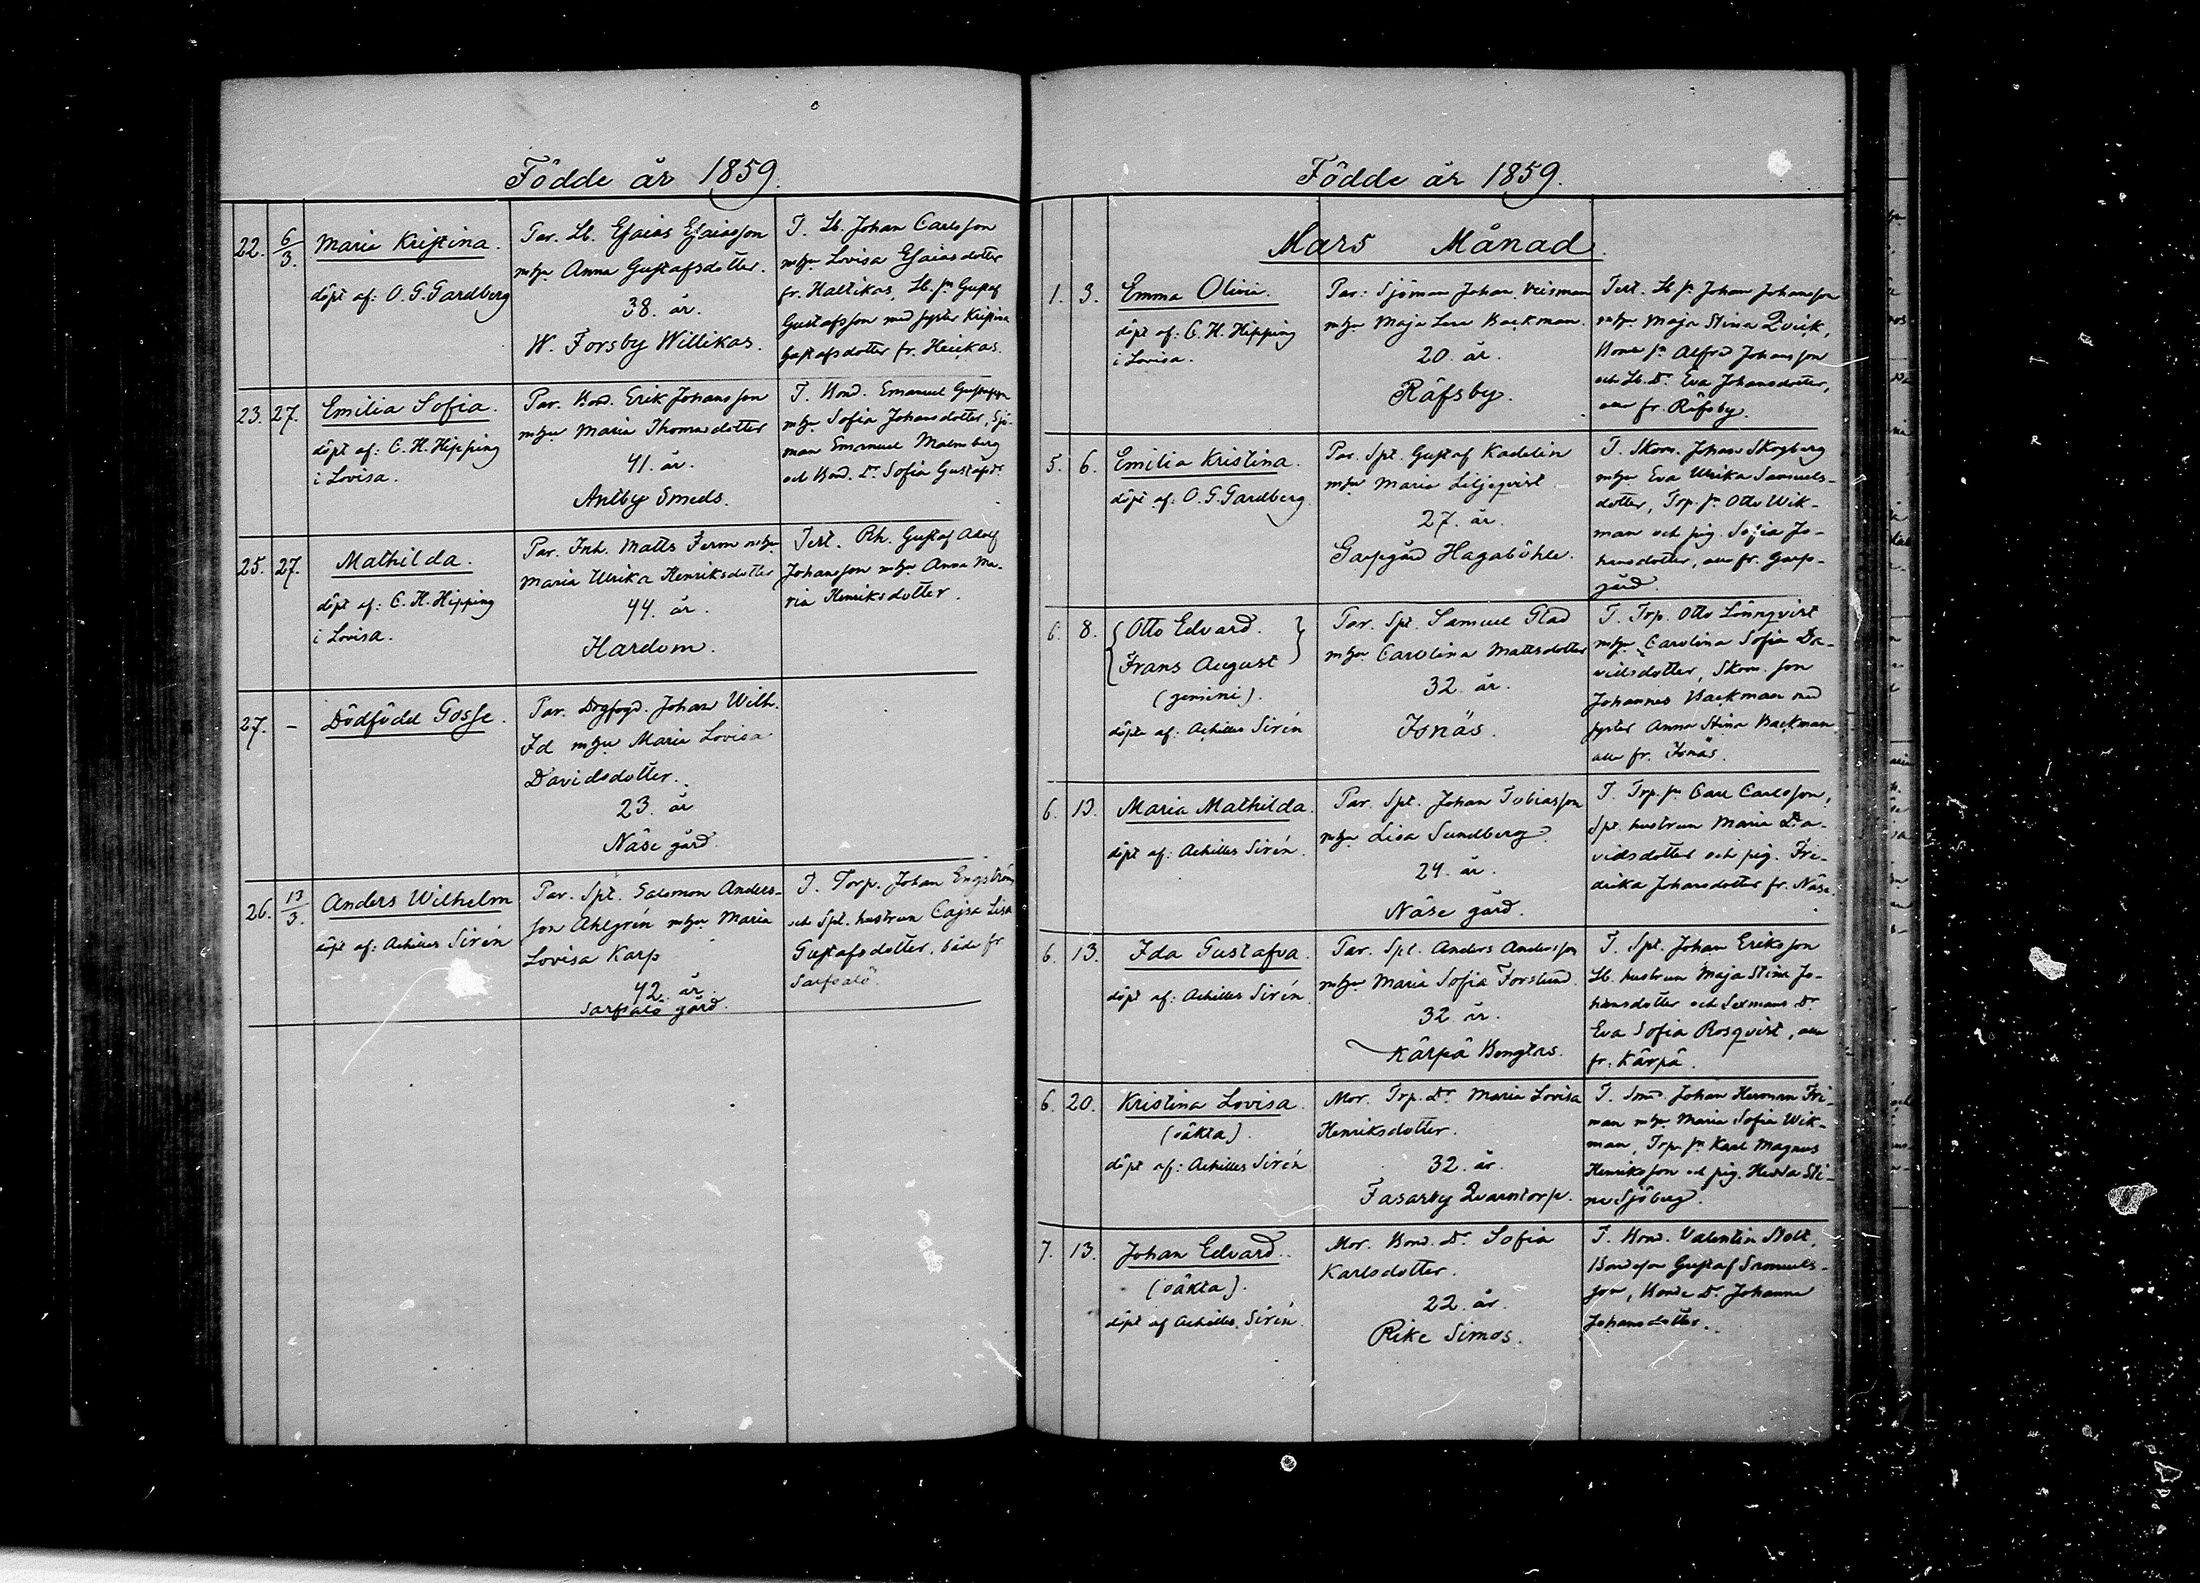 Födde år 1859.
22. 6/3. Maria Kristina.
döpt af: O. G. Gardberg
Par. Lb. Esaias Esaiasson
mhu Anna Gustafsdotter.
38. år.
W. Forsby Willikas.
T. Lb. Johan Carlsson
mhu Lovisa Esaiasdotter
fr. Haltikas, Lb. sn Gustaf
Gustafsson med syster Kristina
Gustafsdotter fr. Heickas.
23. 27. Emilia Sofia.
döpt af: C. H. Hipping
i Lovisa.
Par. Bond. Erik Johansson
mhu Maria Thomasdotter
41. år.
Antby Smeds.
T. Bond. Emanuel Gustafsson
mhu Sofia Johansdotter, Sjö-
man Emanuel Malmberg
och Bond. Dr. Sofia Gustafsdr.
25. 27. Mathilda.
döpt af: C. H. Hipping
i Lovisa.
Par. Inh. Matts Ferm mhu
Maria Ulrika Henriksdotter
44. år.
Hardom.
Test. Rth. Gustaf Adolf
Johansson mhu Anna Ma-
ria Henriksdotter.
27. – Dödfödd Gosse.
Par. Dagfogd. Johan Wilh.
Id mhu Maria Lovisa
Davidsdotter.
23. år
Näse gård.
26. 13/3. Anders Wilhelm
döpt af: Achilles Sirén
Par. Spt. Salomon Anders-
son Ahlgrén mhu Maria
Lovisa Karp
42. år.
Sarfsalö gård.
T. Torp. Johan Engström,
och Spt. hustrun Cajsa Lisa
Gustafsdotter, både fr.
Sarfsalö.
Födde år 1859.
Mars Månad.
1. 3. Emma Olivia.
döpt af: C. H. Hipping
i Lovisa.
Par: Sjöman Johan Weisman
mhu Maja Lena Backman.
20. år.
Räfsby.
Test. Lb sn Johan Johansson
mhu Maja Stina Qvick,
Bonde sn Alfred Johansson
och Lb. Dr. Eva Johansdotter,
alla fr. Räfsby.
5. 6. Emilia Kristina.
döpt af: O. G. Gardberg.
Par. Spt. Gustaf Kadelin
mhu Maria Liljeqvist
27. år.
Garpgård Hagaböhle.
T. Skom. Johan Skogberg
mhu Eva Ulrika Samuels-
dotter, Torp. sn Otto Wik-
man och pig. Sofia Jo-
hansdotter, alla fr. Garp-
gård.
6. 8. Otto Edvard.
Frans August
(gemini).
döpte af: Achilles Sirén
Par. Spt. Samuel Glad
mhu Carolina Mattsdotter
32. år.
Isnäs.
T. Trp. Otto Lönnqvist
mhu Carolina Sofia Da-
vidsdotter, Skom. son
Johannes Backman med
syster Anna Stina Backman
alla fr. Isnäs.
6. 13. Maria Mathilda.
döpt af: Achilles Sirén.
Par. Spt. Johan Tobiasson
mhu Lisa Sundberg.
24. år.
Näse gård.
T. Trp. sn Carl Carlsson,
Spt. hustrun Maria Da-
vidsdotter och pig. Fre-
drika Johansdotter fr. Näse.
6. 13. Ida Gustafva.
döpt af: Achilles Sirén
Par. Spt. Anders Andersson
mhu Maria Sofia Forslund.
32. år.
Kärpä Bengtas.
T. Spt. Johan Eriksson
Lb. hustrun Maja Stina Jo-
hansdotter och Sexmans Dr.
Eva Sofia Rosqvist, alla
fr. Kärpä.
6. 20. Kristina Lovisa.
(oäkta).
döpt af: Achilles Sirén
Mor. Trp. Dr. Maria Lovisa
Henriksdotter.
32. år.
Fasarby Qvarntorp.
T. Smed. Johan Herman Fri-
man mhu Maria Sofia Wik-
man, Trp. sn Karl Magnus
Henriksson och pig. Hedda Sti-
na Sjöberg.
7. 13. Johan Edvard.
(oäkta).
döpt af Achilles Sirén.
Mor. Bond. Dr. Sofia
Karlsdotter.
22. år.
Rike Simos.
T. Bond. Valentin Bolt,
Bondeson Gustaf Samuels-
son, Bonde Dr. Johanna
Johansdotter.